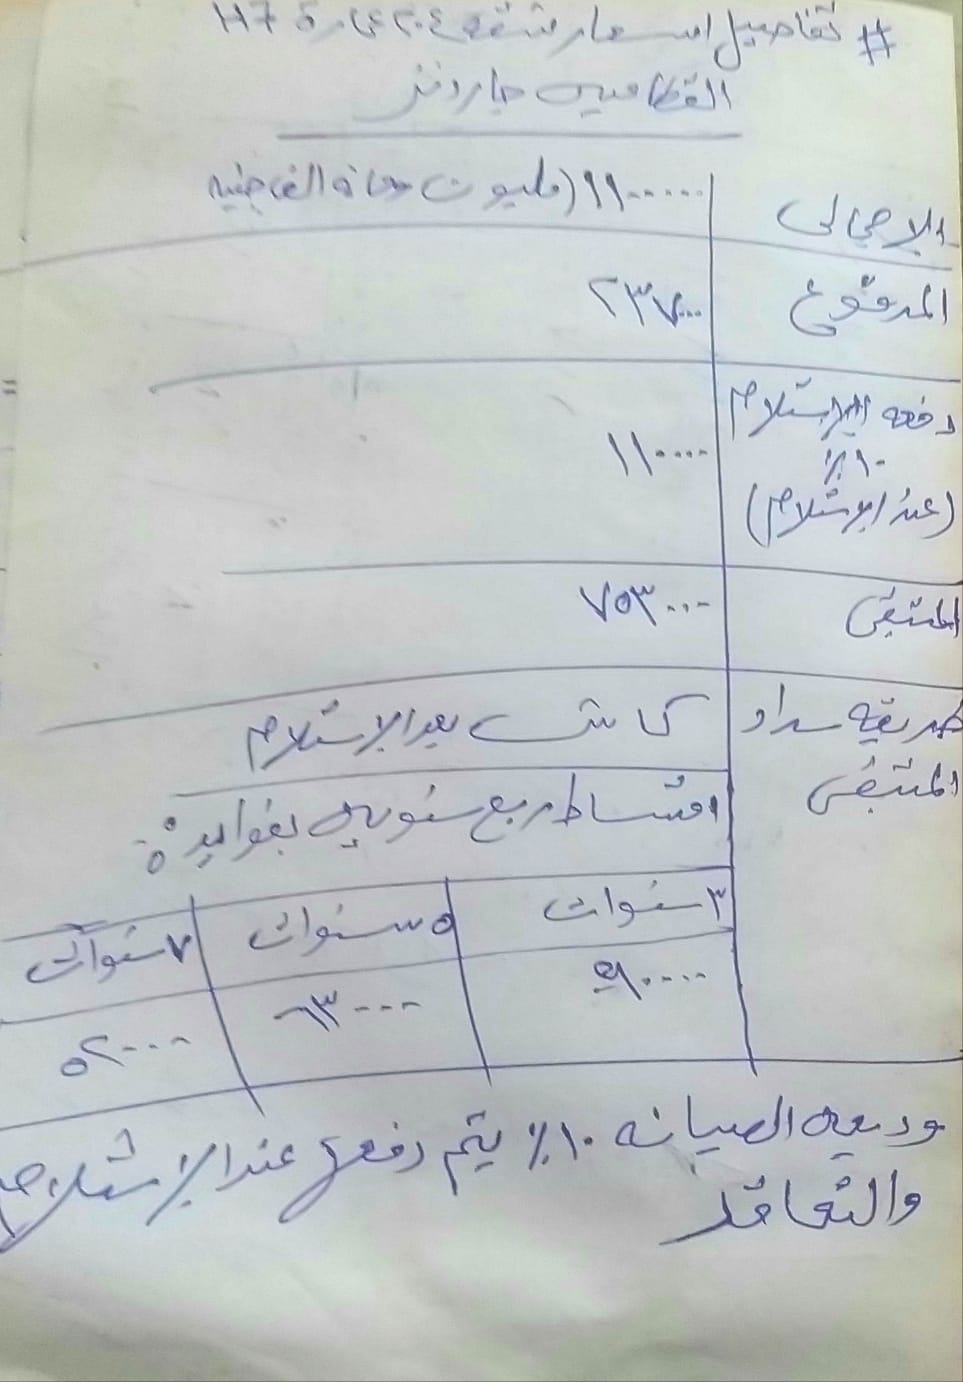 # تفاصيل اسعار شقه ٢٠٤ عمارة H7
القطاميه جاردنز
الاجمالى
١١٠٠٠٠٠ (مليون ومائة الف جنيه
المدفوع
٢٣٧٠٠٠
دفعه الاستلام
١٠٪
(عند الاستلام)
١١٠٠٠٠
المتبقى
٧٥٣٠٠٠
طريقه سداد
المتبقى
كاش بعد الاستلام
اقساط ربع سنويه بفوايد :
٣ سنوات
٥ سنوات
٧ سنوات
٩٠٠٠٠
٦٣٠٠٠
٥٢٠٠٠
وديعه الصيانه ١٠٪ يتم دفع عند الاستلام
والتعاقد